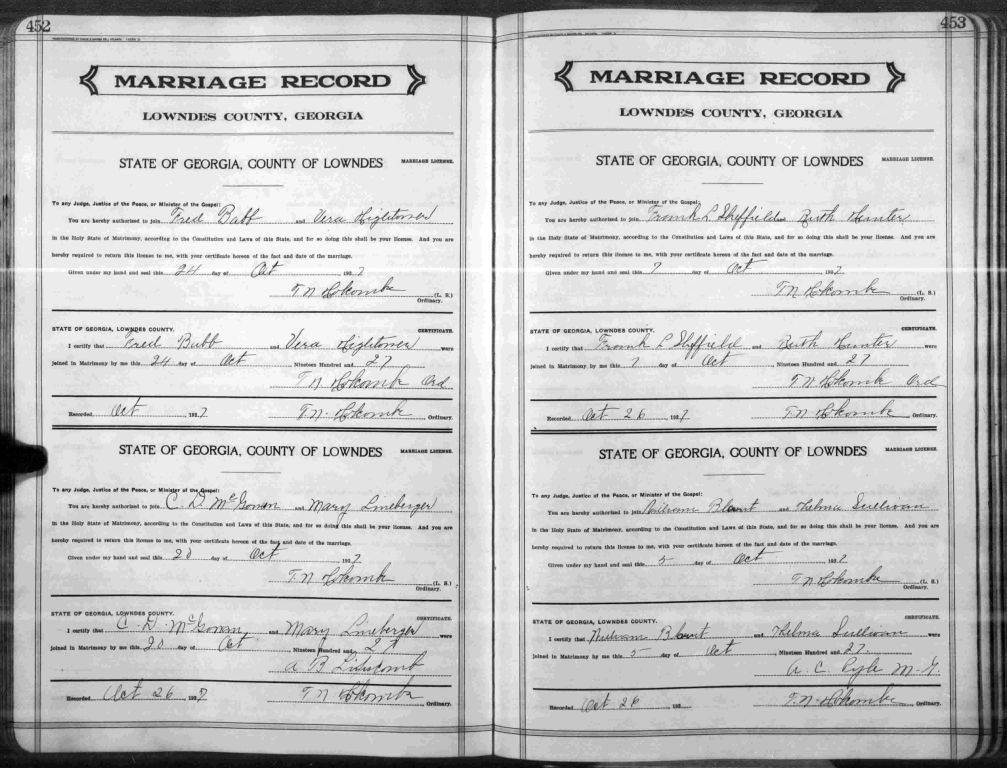 452
MARRIAGE RECORD
LOWNDES COUNTY, GEORGIA
STATE OF GEORGIA, COUNTY OF LOWNDES MARRIAGE LICENSE.
To any Judge, Justice of the Peace, or Minister of the Gospel:
You are hereby authorized to join Fred Babb and Vera Hightower
in the Holy State of Matrimony, according to the Constitution and Laws of this State, and for so doing this shall be your license. And you are
hereby required to return this license to me, with your certificate hereon of the fact and date of the marriage.
Given under my hand and seal this 24 day of Oct 1927
T. N. Holcombe (L. S.)
Ordinary.
STATE OF GEORGIA, LOWNDES COUNTY. CERTIFICATE.
I certify that Fred Babb and Vera Hightower were
joined in Matrimony by me this 24 day of Oct, Nineteen Hundred and 27
T. N. Holcombe Ord
Recorded Oct 1927 T. N. Holcombe Ordinary.
STATE OF GEORGIA, COUNTY OF LOWNDES MARRIAGE LICENSE.
To any Judge, Justice of the Peace, or Minister of the Gospel:
You are hereby authorized to join C. D. McGowan and Mary Lineberger
in the Holy State of Matrimony, according to the Constitution and Laws of this State, and for so doing this shall be your license. And you are
hereby required to return this license to me, with your certificate hereon of the fact and date of the marriage.
Given under my hand and seal this 20 day of Oct 1927
T. N. Holcombe (L. S.)
Ordinary.
STATE OF GEORGIA, LOWNDES COUNTY. CERTIFICATE.
I certify that C. D. McGowan and Mary Lineberger were
joined in Matrimony by me this 20 day of Oct, Nineteen Hundred and 27
A B
Recorded Oct 26 1927 T. N. Holcombe Ordinary.
453
MARRIAGE RECORD
LOWNDES COUNTY, GEORGIA
STATE OF GEORGIA, COUNTY OF LOWNDES MARRIAGE LICENSE.
To any Judge, Justice of the Peace, or Minister of the Gospel:
You are hereby authorized to join Frank L Sheffield and Ruth Hunter
in the Holy State of Matrimony, according to the Constitution and Laws of this State, and for so doing this shall be your license. And you are
hereby required to return this license to me, with your certificate hereon of the fact and date of the marriage.
Given under my hand and seal this 7 day of Oct 1927
T. N. Holcombe (L. S.)
Ordinary.
STATE OF GEORGIA, LOWNDES COUNTY. CERTIFICATE.
I certify that Frank L Sheffield and Ruth Hunter were
joined in Matrimony by me this 7 day of Oct, Nineteen Hundred and 27
T. N. Holcombe Ord
Recorded Oct 26 1927 T. N. Holcombe Ordinary.
STATE OF GEORGIA, COUNTY OF LOWNDES MARRIAGE LICENSE.
To any Judge, Justice of the Peace, or Minister of the Gospel:
You are hereby authorized to join Blount and Thelma Sullivan
in the Holy State of Matrimony, according to the Constitution and Laws of this State, and for so doing this shall be your license. And you are
hereby required to return this license to me, with your certificate hereon of the fact and date of the marriage.
Given under my hand and seal this 5 day of Oct 1927
T. N. Holcombe (L. S.)
Ordinary.
STATE OF GEORGIA, LOWNDES COUNTY. CERTIFICATE.
I certify that Blount and Thelma Sullivan were
joined in Matrimony by me this 5 day of Oct, Nineteen Hundred and 27.
A. C. Pyle M. G.
Recorded Oct 26 192 T. N. Holcombe Ordinary.